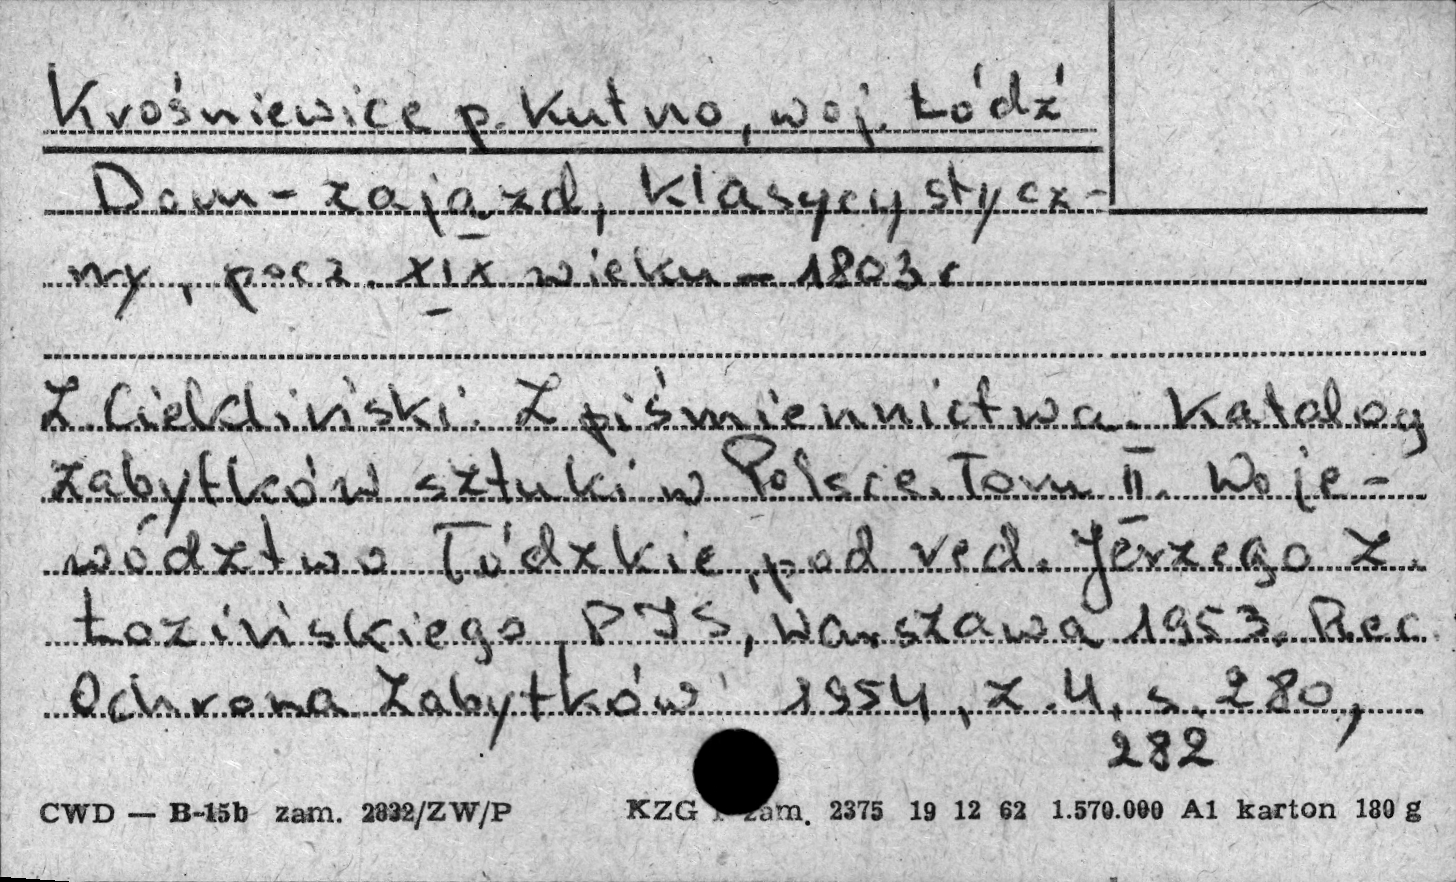 Krośniewice p. Kutno, woj. Łódź
Dom-zajazd, klasycystycz-
ny, pocz. XIX wieku – 1803 r
Z. Ciekliński. Z piśmiennictwa. Katalog
zabytków sztuki w Polsce. Tom II. Woje-
wództwo Łódzkie, pod red. Jerzego Z.
Łozińskiego, PIS, Warszawa 1953. Rec
Ochrona Zabytków 1954, z. 4, s. 280,
282
CWD — B-15b zam. 2832/ZW/P KZG zam. 2375 19 12 62 1.570.000 A1 karton 180 g